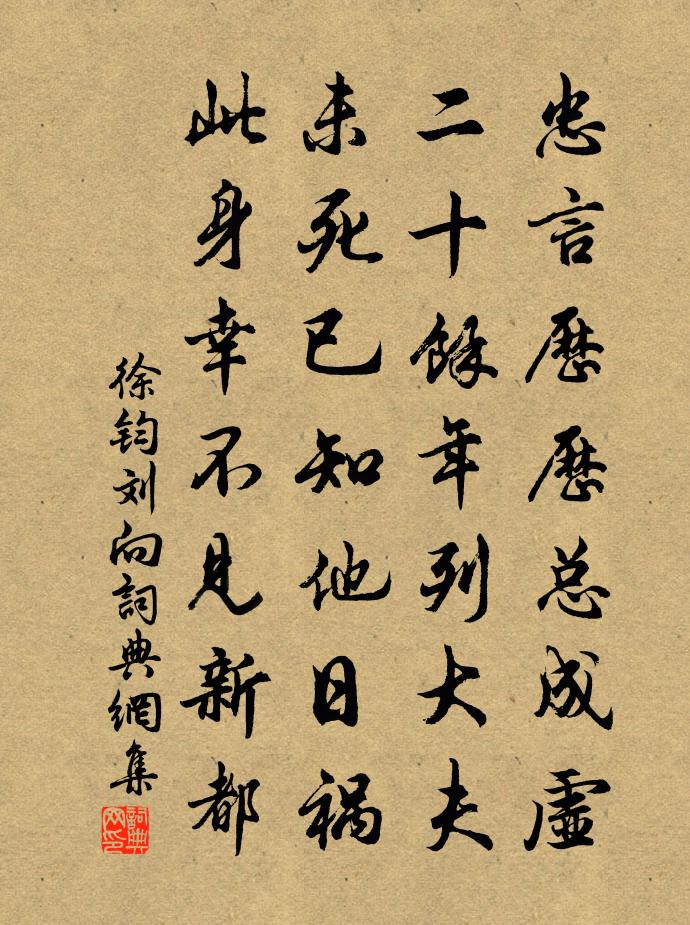 忠言歷歷总成虛
二十餘年列大夫
未死已知他日禍
此身幸不見新都
徐钧刘向詞典網集
詞典网印